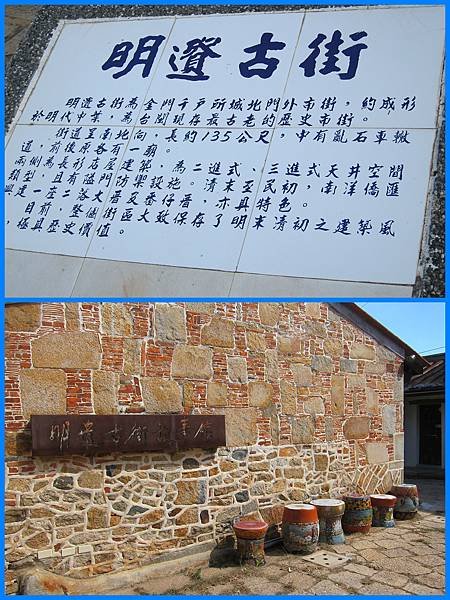 明遺古街
明遺古街為金門千戶所城北門外市街，約成形
於明代中葉，為台閩現存最古老的歷史市街。
街道呈南北向，長約135公尺，中有亂石車轍
道，前後原各有一廟。
兩側為長形店屋建築，為二進式、三進式天井空間
類型，且有隘門防禦設施。清末至民初，南洋僑匯
興建一座二落大厝及番仔厝，亦具特色。
目前，整個街區大致保存了明末清初之建築風
，極具歷史價值。
明遺古街